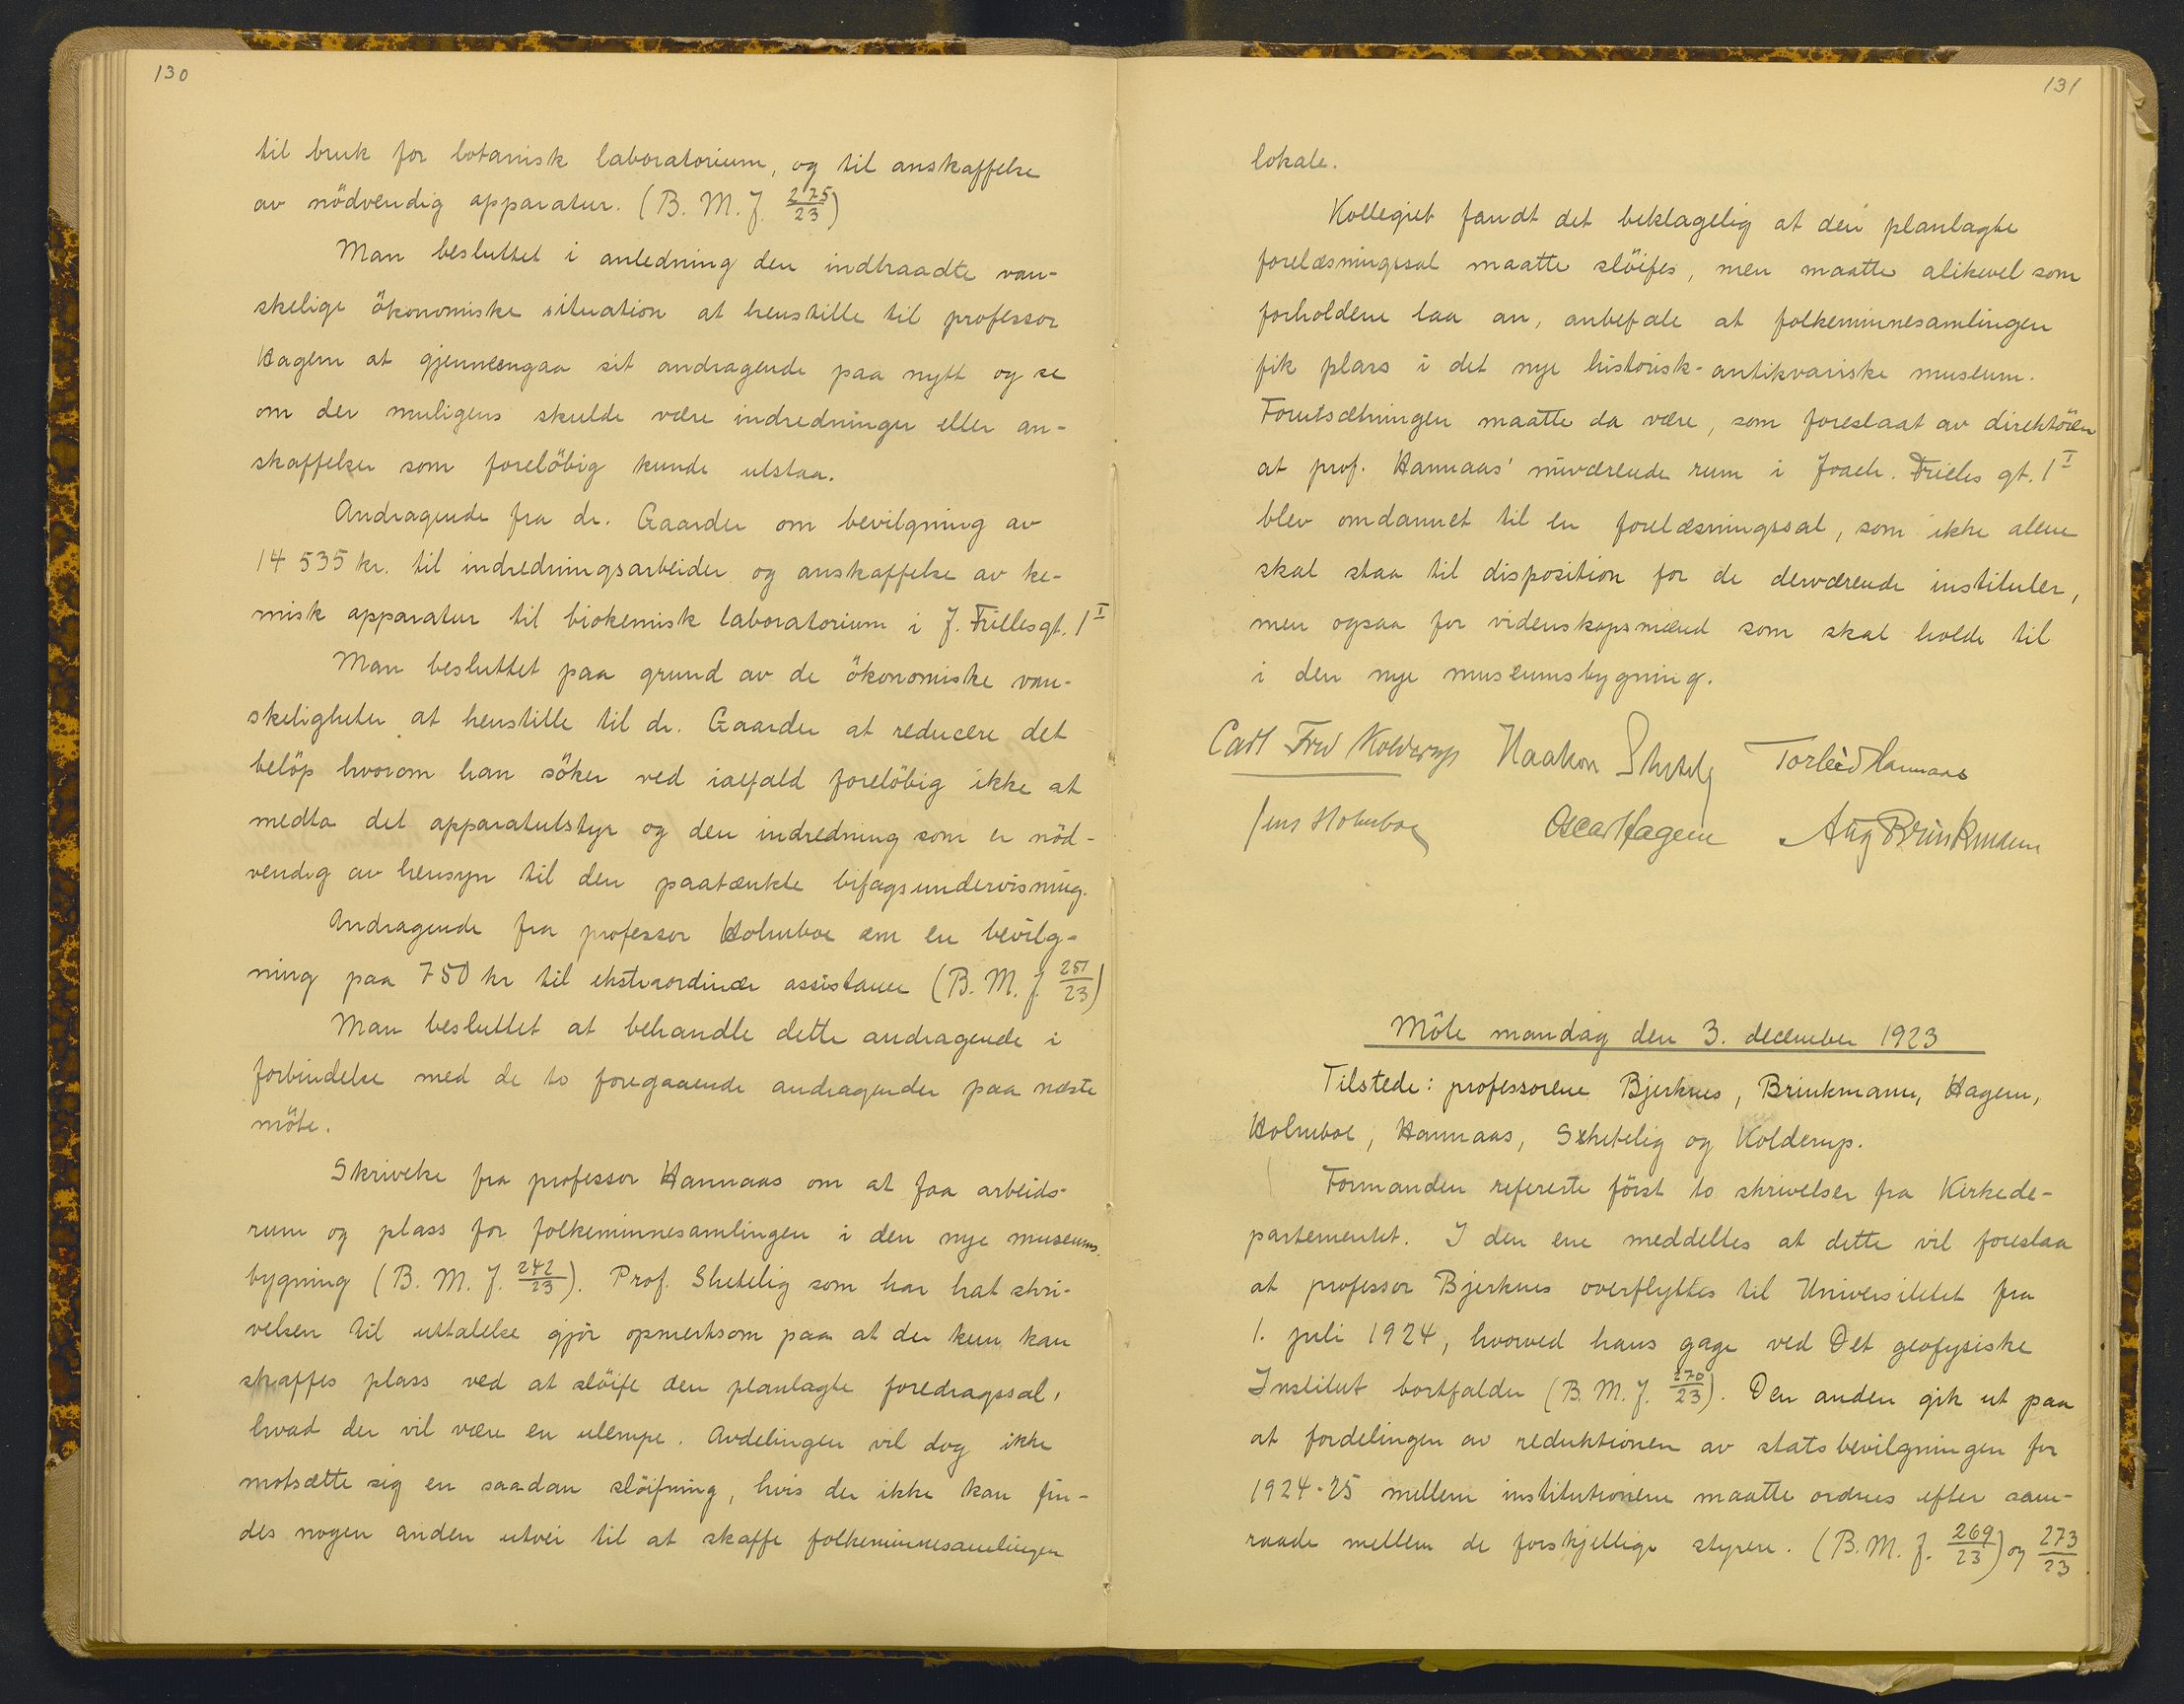 130
til bruk for botanisk laboratorium, og til anskaffelse
av nödvendig apparatur. (B. M. J. 275/23)
Man besluttet i anledning den indtraadte van-
skelige ökonomiske situation at henstille til professor
Hagem at gjennemgaa sit andragende paa nytt og se
om der muligens skulde være indredninger eller an-
skaffelser som foreløbig kunde utstaa.
Andragende fra dr. Gaarder om bevilgning av
14 535 kr. til indredningsarbeider og anskaffelse av ke-
misk apparatur til biokemisk laboratorium i J. Frielesgt. 1 I
Man besluttet paa grund av de ökonomiske van-
skeligheter at henstille til dr. Gaarder at reducere det
belöp hvorom han söker ved ialfald forelöbig ikke at
medta det apparatutstyr og den indredning som er nöd-
vendig av hensyn til den paatænkte bifagsundervisning.
Andragende fra professor Holmboe om en bevilg-
ning paa 750 kr til ekstraordinær assistanse (B. M. J. 251/23)
Man besluttet at behandle dette andragende i
forbindelse med de to foregaaende andragender paa næste
möte.
Skrivelse fra professor Hannaas om at faa arbeids-
rum og plass for folkeminnesamlingen i den nye museums-
bygning (B. M. J. 242/23). Prof. Shetelig som har hat skri-
velsen til uttalelse gjör opmerksom paa at der kun kan
skaffes plass ved at slöife den planlagte foredragssal,
hvad der vil være en ulempe. Avdelingen vil dog ikke
motsætte sig en saadan slöifning, hvis der ikke kan fin-
des nogen anden utvei til at skaffe folkeminnesamlingen
131
lokale.
Kollegiet fandt det beklagelig at den planlagte
forelæsningssal maatte slöifes, men maatte alikevel som
forholdene laa an, anbefale at folkeminnesamlingen
fik plass i det nye historisk-antikvariske museum.
Forutsætningen maatte da være, som foreslaat av direktören
at prof. Hannaas' nuværende rum i Joach. Frieles gt. 1 I
blev omdannet til en forelæsningssal, som ikke alene
skal staa til disposition for de derværende instituter,
men ogsaa for videnskapsmænd som skal holde til
i den nye museumsbygning.
Carl Fred Kolderup Haakon Shetelig Torleiv Hannaas
Jens Holmboe Oscar Hagem Aug Brinkmann
Möte mandag den 3. december 1923
Tilstede: professorene Bjerknes, Brinkmann, Hagem,
Holmboe, Hannaas, Shetelig og Kolderup.
Formanden refererte först to skrivelser fra Kirkede-
partementet. I den ene meddeltes at dette vil foreslaa
at professor Bjerknes overflyttes til Universitetet fra
1. juli 1924, hvorved hans gage ved Det geofysiske
Institut bortfalder (B. M. J. 270/23). Den anden gik ut paa
at fordelingen av reduktionen av statsbevilgningen for
1924-25 mellem institutionene maatte ordnes efter sam-
raade mellem de forskjellige styrer. (B. M. J. 269/23) og 273/23.